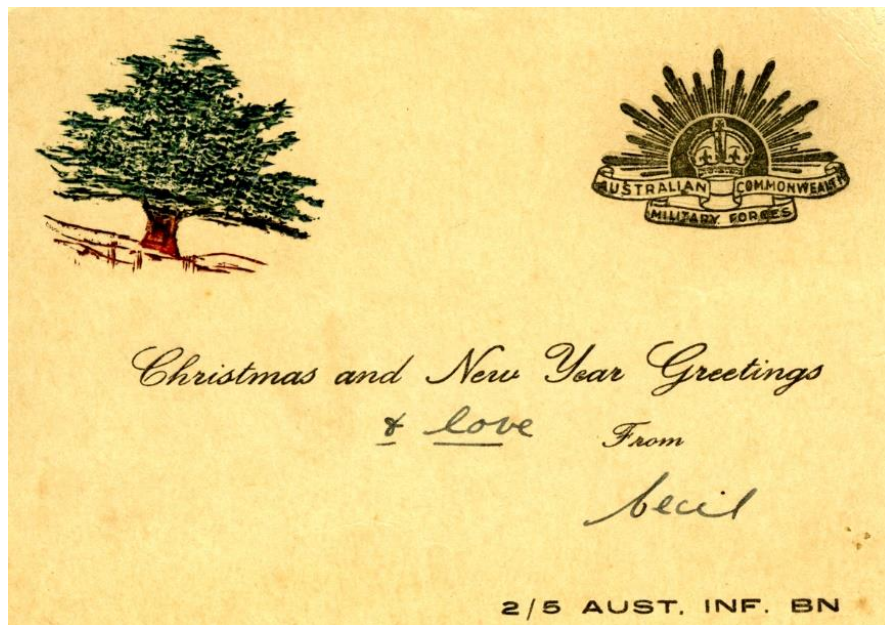 AUSTRALIAN COMMONWEALTH
MILITARY FORCES
Christmas and New Year Greetings
& love From
Cecil
2/5 AUST. INF. BN